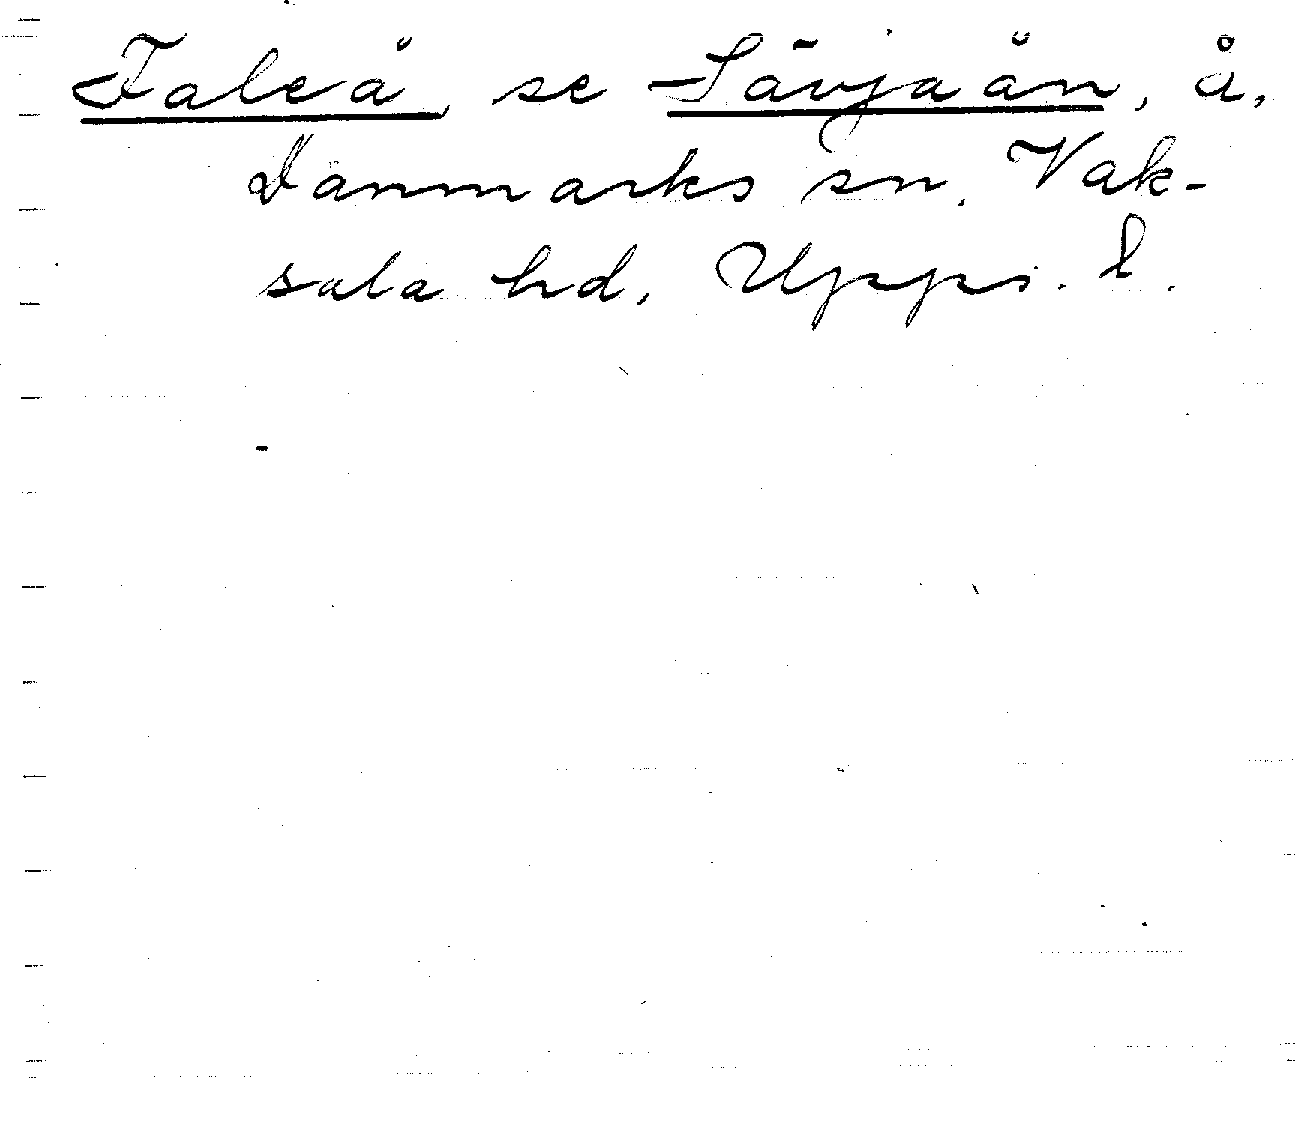 Faleå, se Sävjaån, å,
Danmarks sn, Vak-
sala hd, Upps. l.